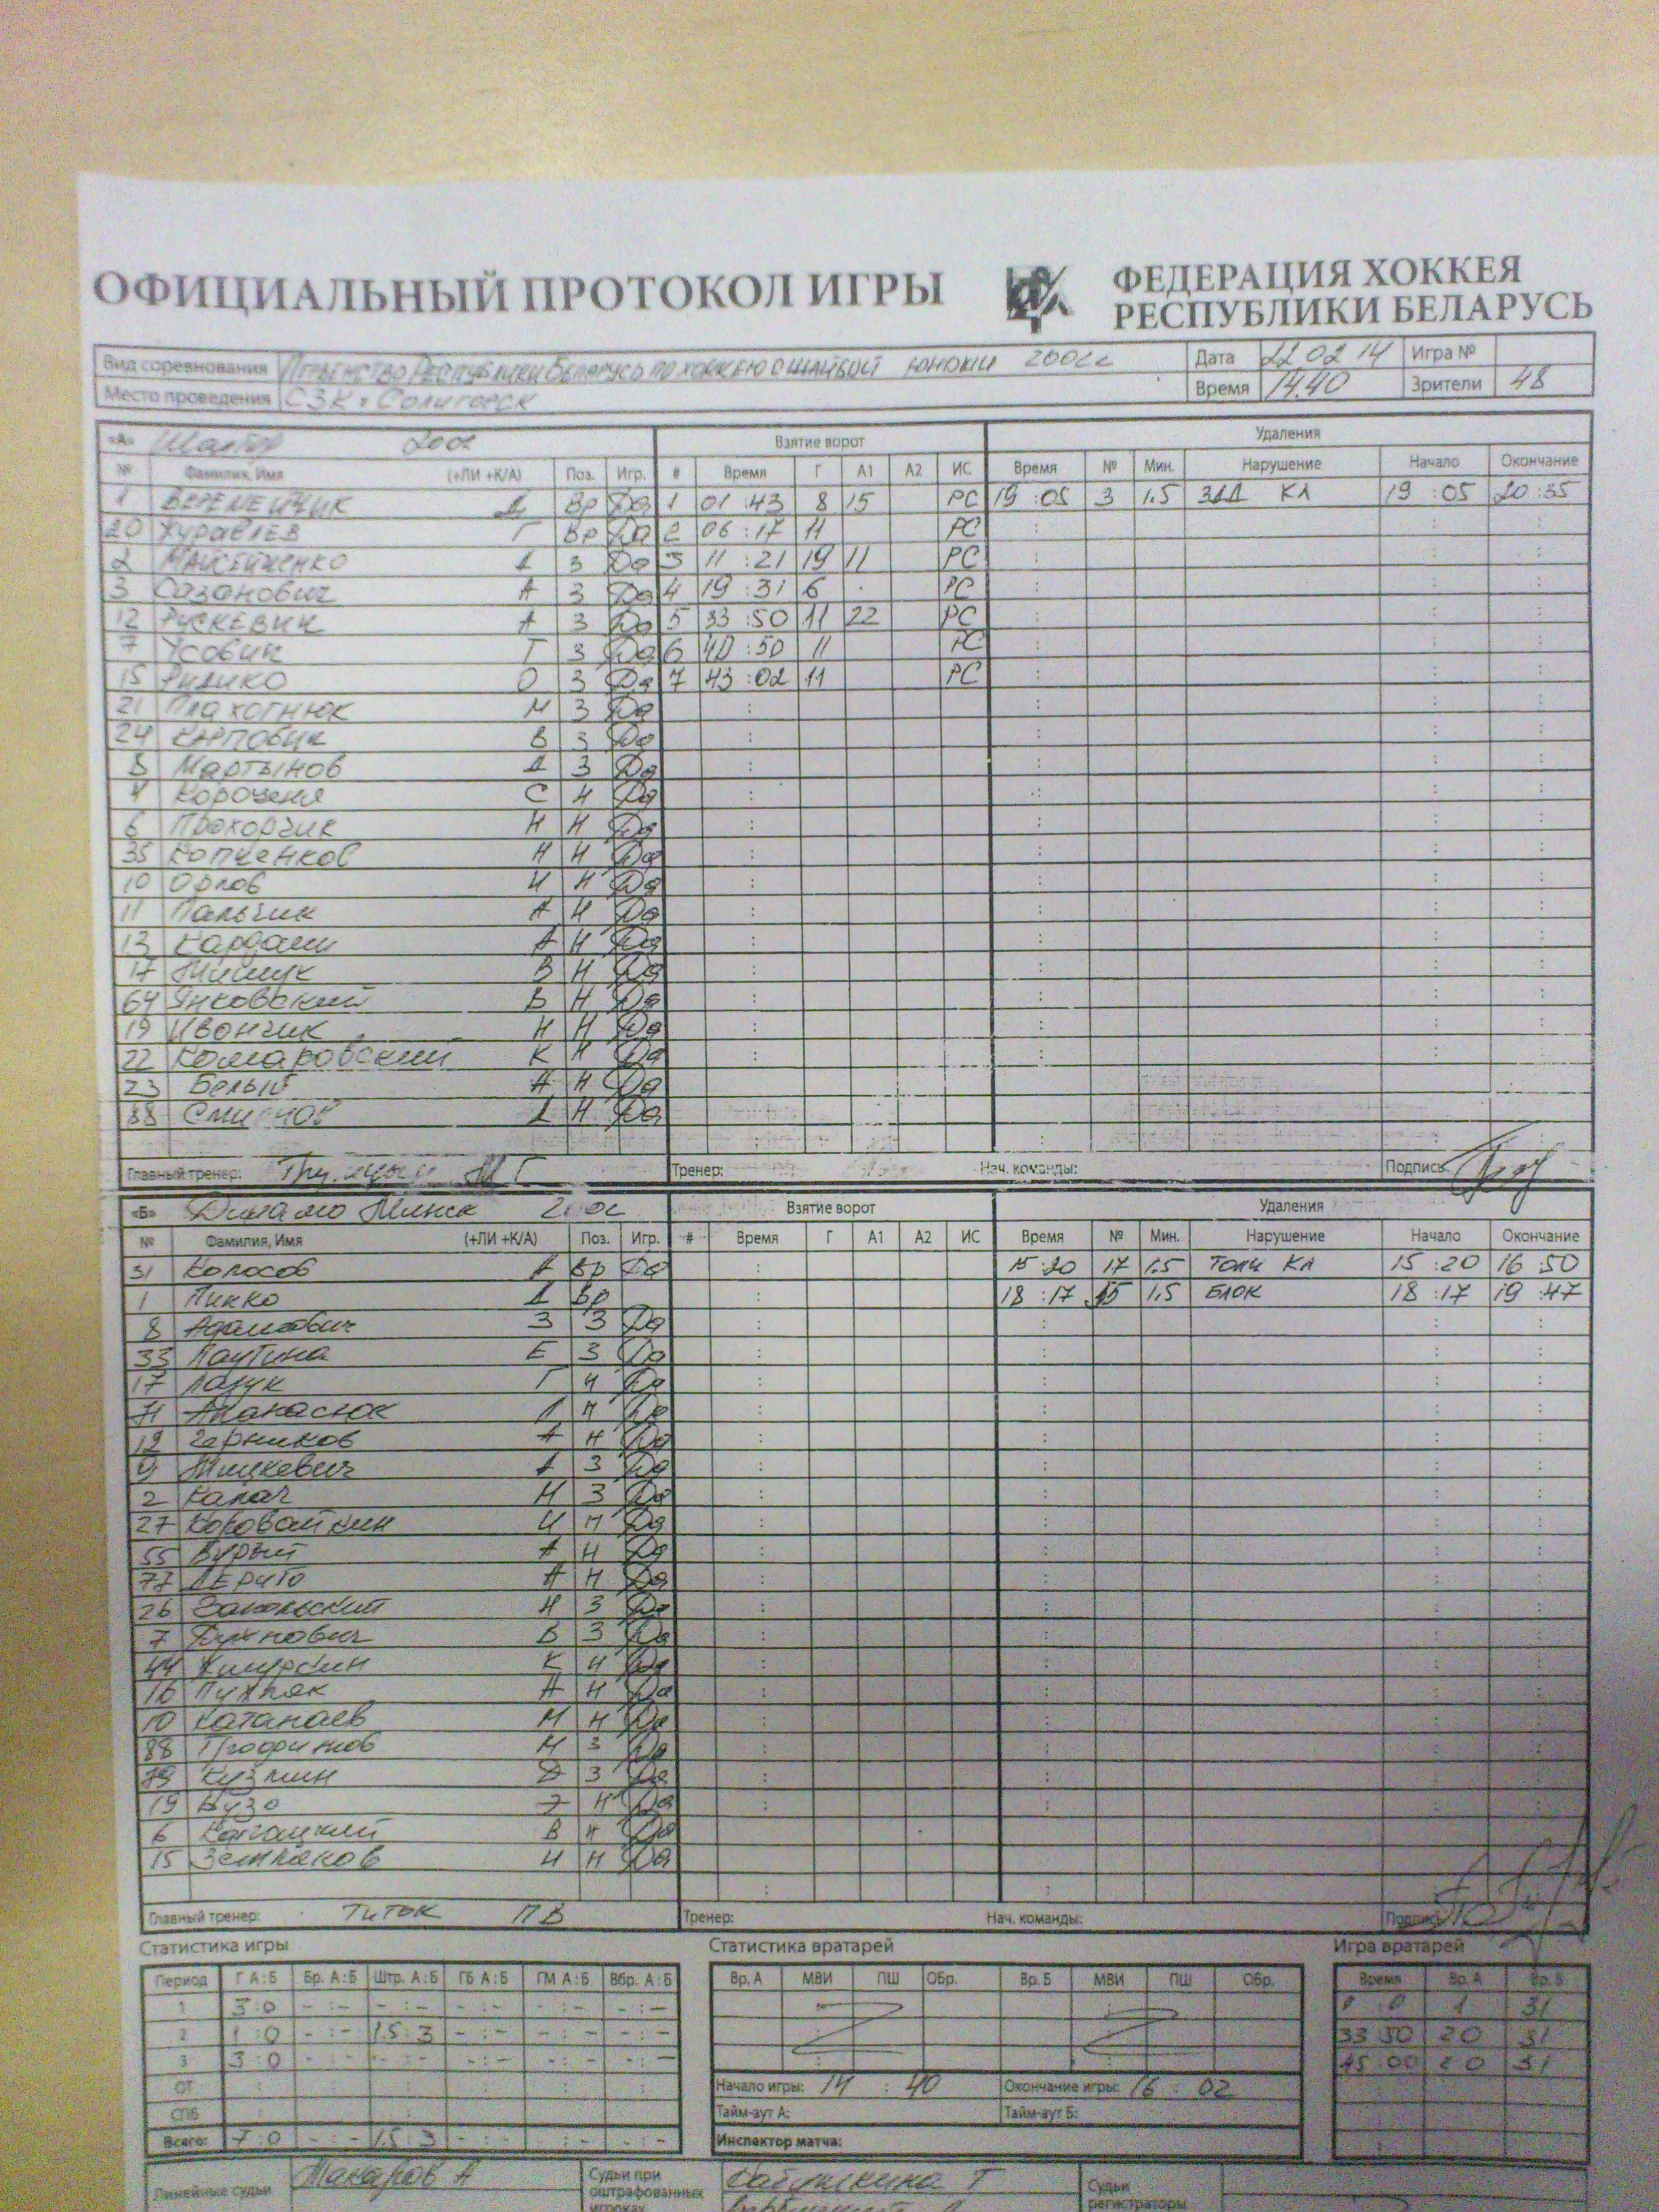 ОФИЦИАЛЬНЫЙ ПРОТОКОЛ ИГРЫ
ФЕДЕРАЦИЯ ХОККЕЯ
РЕСПУБЛИКИ БЕЛАРУСЬ
Вид соревнования Первенство Республики Беларусь по хоккею с шайбой юноши 2002г Дата 22 02 14 Игра №
Место проведения СЗК г. Солигорск Время 14.40 Зрители 48
«А» Шахтер Взятие ворот Удаления
№ Фамилия, Имя (+ЛИ +К/А) Поз. Игр. # Время Г А1 А2 ИС Время № Мин. Нарушение Начало Окончание
1 Веремейчик Д Вр Да 1 01:43 8 15 РС 19:05 3 1.5 ЗАД КЛ 19:05 20:35
20 Журавлев Г Вр Да 2 06:17 11 РС
2 Д З Да 3 11:21 19 11 РС
3 Сазанович А З Да 4 19:31 6 РС
12 Рускевич А З Да 5 33:50 11 22 РС
7 Усович Т З Да 6 40:50 11 РС
15 О З Да 7 43:02 11 РС
21 Плахотнюк М З Да
24 Карпович В З Да
Мартынов Д З Да
С Н Да
6 Прохорчик Н Н Да
35 Копченков Н Н Да
10 Орлов И Н Да
11 Пальчик А Н Да
13 Кардаш А Н Да
17 Мишук В Н Да
64 Янковский В Н Да
19 Ивончик Н Н Да
22 Комаровский К Н Да
23 Белый А Н Да
88 Смирнов Д Н Да
Главный тренер: Тренер: Нач. команды: Подпись
«Б» Динамо Минск Взятие ворот Удаления
№ Фамилия, Имя (+ЛИ +К/А) Поз. Игр. # Время Г А1 А2 ИС Время № Мин. Нарушение Начало Окончание
31 Колосов А Вр Да 15:20 17 1.5 Толч КЛ 15:20 16:50
1 Пикко Д Вр 18:17 15 1.5 БЛОК 18:17 19:47
8 Адамович З З Да
33 Паутина Е З Да
17 Лазук Г Н Да
71 Апанасюк Н Да
12 Черников А Н Да
9 Мицкевич А З Да
2 Калач Н З Да
27 Коровайкин И Н Да
55 Бурый А Н Да
77 А Н Да
26 Закольский Н З Да
7 В З Да
44 К Н Да
16 А Н Да
10 Катанаев М Н Да
88 М З Да
Кузмин Д З Да
19 Н Да
6 В Н Да
15 Земляков И Н Да
Главный тренер: Титок П В Тренер: Нач. команды: Подпись
Статистика игры Статистика вратарей Игра вратарей
Период Г А:Б Бр. А:Б Штр. А:Б ГБ А:Б ГМ А:Б Вбр. А:Б Вр. А МВИ ПШ ОБр. Вр. Б МВИ ПШ Обр. Время Вр. А Вр. Б
1 3:0 -:- -:- -:- -:- -:- 0:0 1 31
2 1:0 -:- 1.5:3 -:- -:- -:- 33 50 20 31
3 3:0 -:- -:- -:- -:- -:- 45:00 20 31
ОТ Начало игры: 14:40 Окончание игры: 16:02
СПБ Тайм-аут А: Тайм-аут Б:
Всего: 7:0 -:- 1.5:3 -:- -:- -:- Инспектор матча:
Линейные судьи Макаров А Судьи при оштрафованных игроках Т Судьи регистраторы